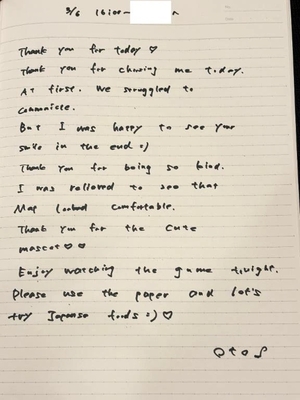 3/6
Thank you for today ♡
Thank you for choosing me today.
At first. We struggled to
communicate.
But I was happy to see your
smile in the end :)
Thank you for being so kind.
I was relieved to see that
Map looked comfortable.
Thank you for the cute
mascot ♡ ♡
Enjoy watching the game tonight.
Please use the paper and let's
try Japanese foods :) ♡